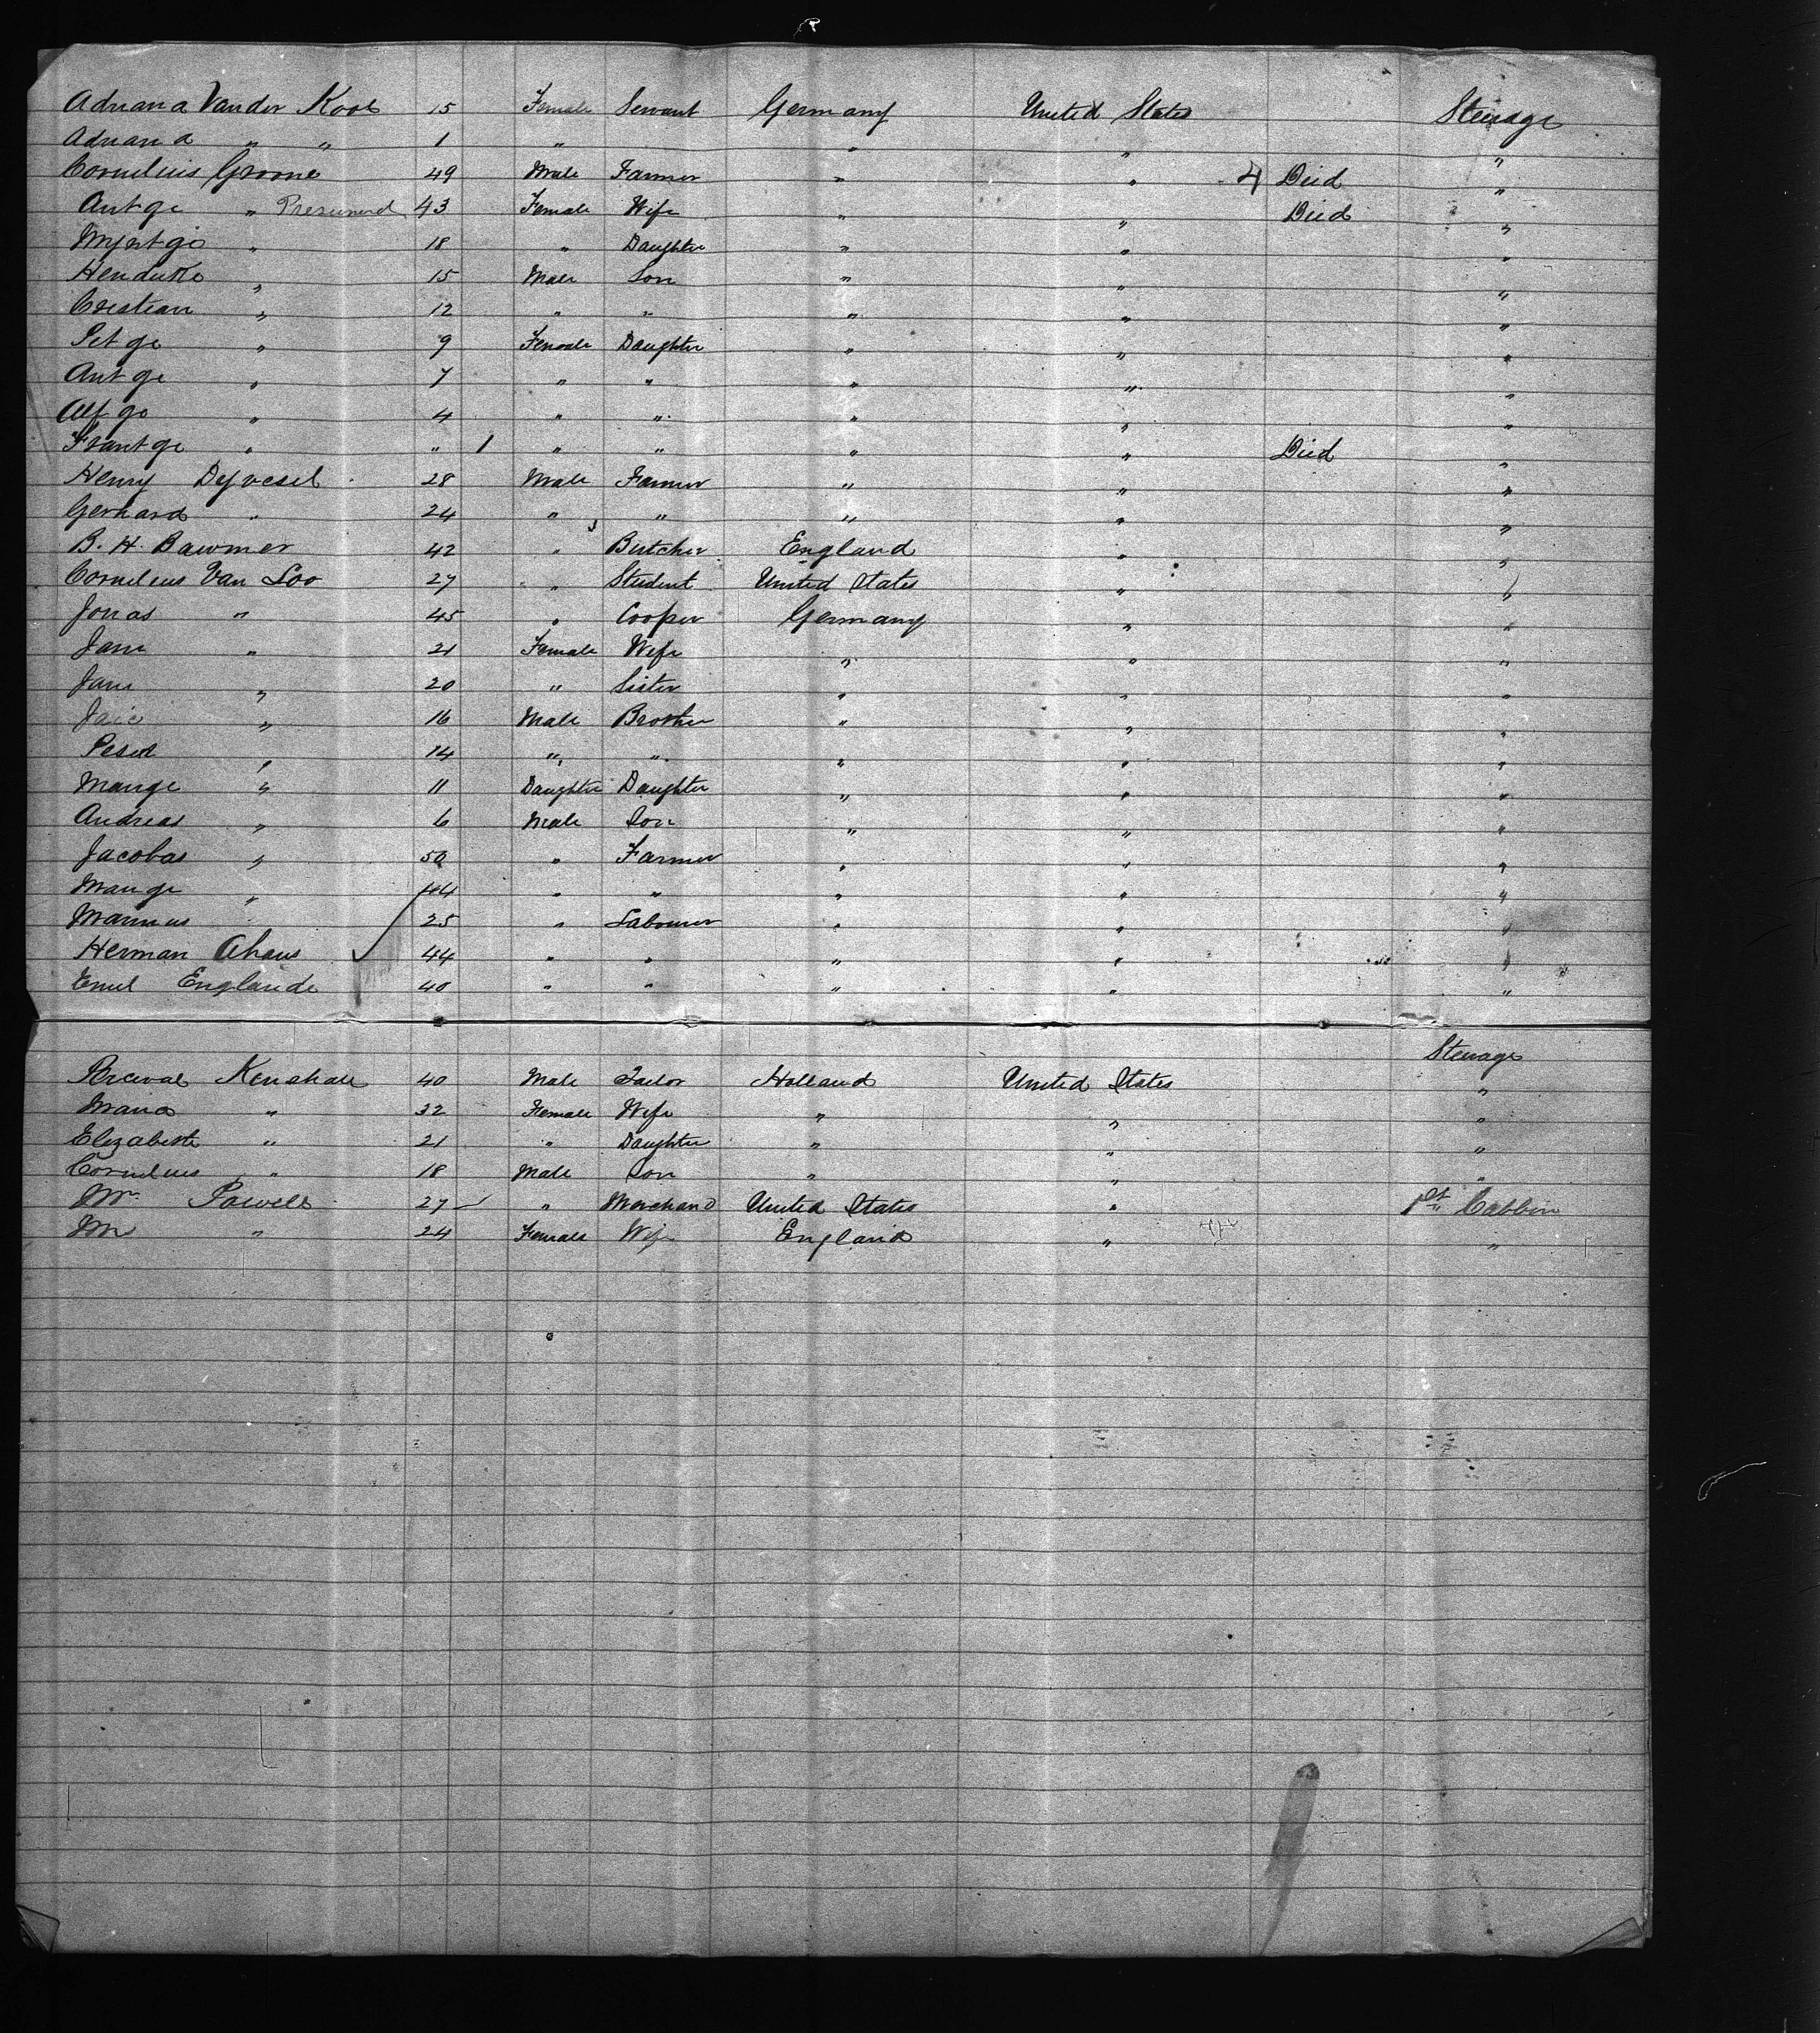 Adriana Vander Kool 15 Female Servant Germany United States Steerage
Adriana " " 1 " " " "
Cornelius Groone 49 Male Farmer " " 4 Died "
Antge " Presumed 43 Female Wife " " Died "
Myntge " 18 " Daughter " " "
Hendrike " 15 Male Son " " "
Cristian " 12 " " " " "
Petge " 9 Female Daughter " " "
Antge " 7 " " " " "
Alfge " 4 " " " " "
Frantge " " 1 " " " " Died "
Henry Dyvesil 28 Male Farmer " " "
Gerhard " 24 " " " " "
B. H. Bawmer 42 " Butcher England " "
Cornelius Van Loo 27 " Student United States " "
Jonas " 45 " Cooper Germany " "
Jane " 21 Female Wife " " "
Jane " 20 " Sister " " "
" 16 Male Brother " " "
Peter " 14 " " " " "
Mange " 11 Daughter Daughter " " "
Andreas " 6 Male Son " " "
Jacobas " 50 " Farmer " " "
Mange " 44 " " " " "
Marinus " 25 " Labourer " " "
Herman Ahaus 44 " " " " "
Emil Englande 40 " " " " "
Steerage
Perceval Kenshall 40 Male Tailor Holland United States "
Maria " 32 Female Wife " " "
Elizabeth " 21 " Daughter " " "
Cornelius " 18 Male Son " " "
Mr. Powell 27 " Merchand United States " 1st Cabbin
Mr " 24 Female Wife England " "